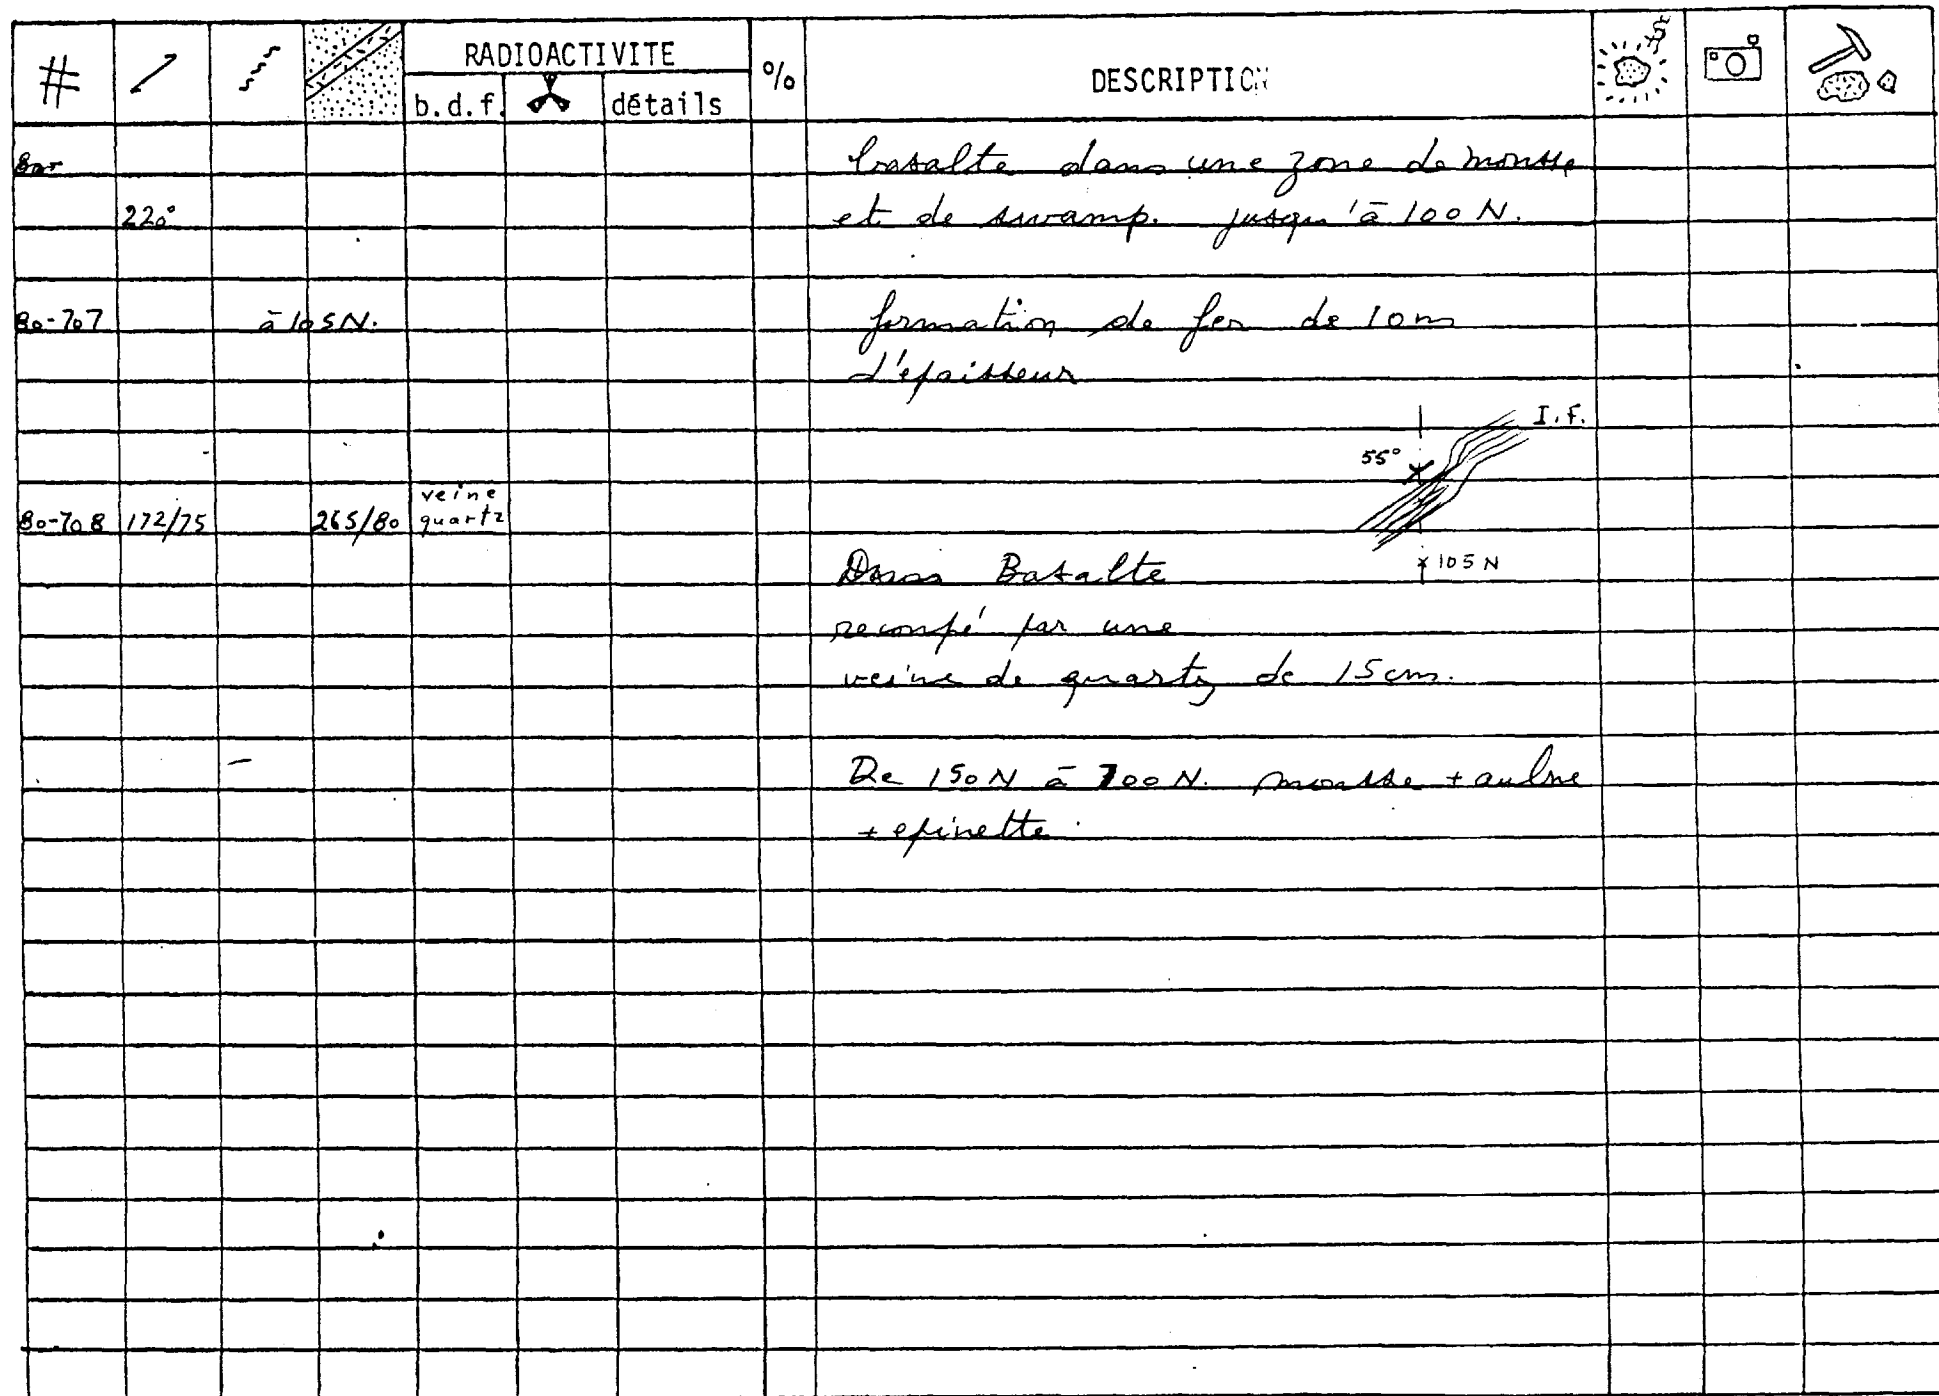 # RADIOACTIVITE % DESCRIPTION $
b.d.f. détails
basalte dans une zone de mousse
220° et de swamp. jusqu'à 100 N.
80-707 à 105N. formation de fer de 10m
d'épaisseur
I.F.
55°
veine
80-708 172/75 265/80 quartz
Basalte x 105 N
recoupé par une
veine de quartz de 15cm.
De 150N à 700N. mousse + aulne
+ epinette.